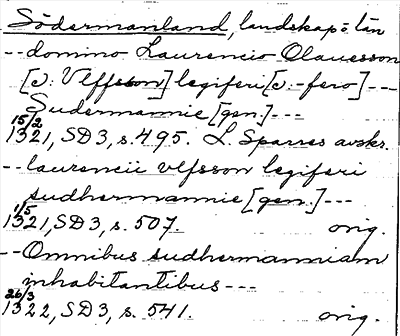 Södermanland, landskap o. län
-- domino Laurencio Olauesson
[J. Vlffsson] legiferi [J. -fero] ---
Sudermannie [gen.] ---
15/2
1321, SD3, s. 495. L. Sparres avskr.
-- laurencii vlfsson legiferi
sudhermannie [gen.] ---
1/5
1321, SD3, s. 507. orig.
-- Omnibus sudhermanniam
inhabitantibus ---
26/3
1322, SD3, s. 541. orig.